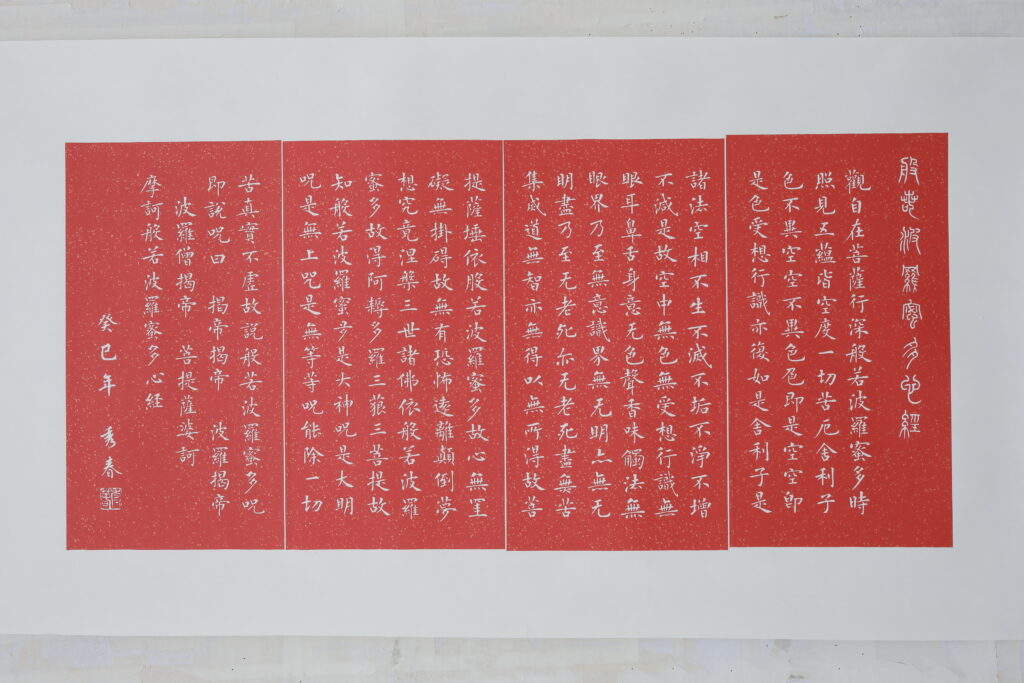 般若波羅蜜多心經
觀自在菩薩行深般若波羅蜜多時
照見五蘊皆空度一切苦厄舍利子
色不異空空不異色色即是空空即
是色受想行識亦復如是舍利子是
諸法空相不生不滅不垢不淨不增
不減是故空中無色無受想行識無
眼耳鼻舌身意无色聲香味觸法無
眼界乃至無意識界無无明亦無无
明盡乃至无老死亦无老死盡無苦
集滅道無智亦無得以無所得故菩
提薩埵依般若波羅蜜多故心無罣
礙無掛碍故無有恐怖遠離顛倒夢
想究竟涅槃三世諸佛依般若波羅
蜜多故得阿耨多羅三藐三菩提故
知般若波羅蜜多是大神呪是大明
呪是無上呪是無等等呪能除一切
苦真實不虛故說般若波羅蜜多呪
即說呪曰 揭帝揭帝 波羅揭帝
波羅僧揭帝 菩提薩婆訶
摩訶般若波羅蜜多心経
癸巳年 秀春